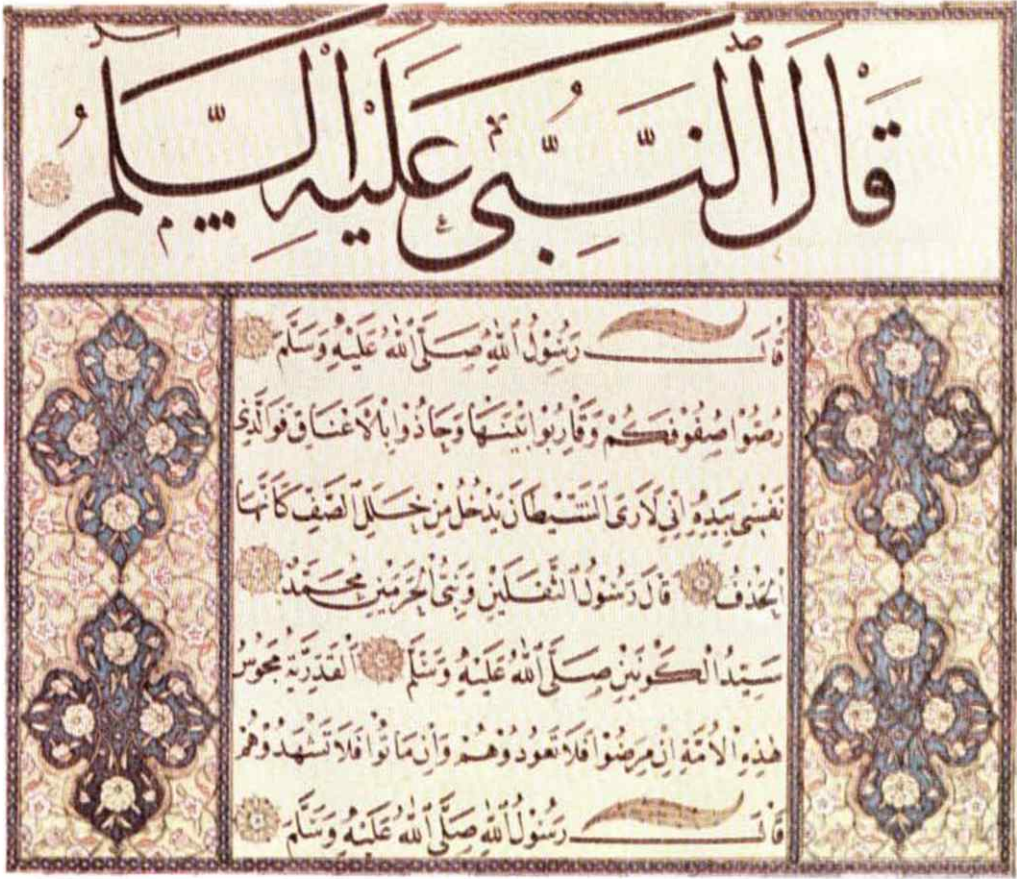 قَالَ النَّبِيُّ عَلَيْهِ السَّلَمُ
قَالَ رَسُوْلُ ٱللهِ صَلَّى ٱللهُ عَلَيْهِ وَسَلَّمَ
رُصُّوا صُفُوْفَكُمْ وَقَارِبُوا بَيْنَهَا وَحَاذُوا بِالْاَعْنَاقِ فَوَالَّذِي
نَفْسِي بِيَدِهِ اِنِّي لَاَرَى الشَّيْطَانَ يَدْخُلُ مِنْ خَلَلِ الصَّفِّ كَاَنَّهَا
الْحَذَفُ قَالَ رَسُوْلُ الثَّقَلَيْنِ وَنَبِيُّ الْحَرَمَيْنِ مُحَمَّدٌ
سَيِّدُ الْكَوْنَيْنِ صَلَّى ٱللهُ عَلَيْهِ وَسَلَّمَ اَلْقَدَرِيَّةُ مَجُوْسُ
هٰذِهِ الْاُمَّةِ اِنْ مَرِضُوا فَلَا تَعُودُوْهُمْ وَاِنْ مَاتُوا فَلَا تَشْهَدُوْهُمْ
قَالَ رَسُوْلُ ٱللهِ صَلَّى ٱللهُ عَلَيْهِ وَسَلَّمَ